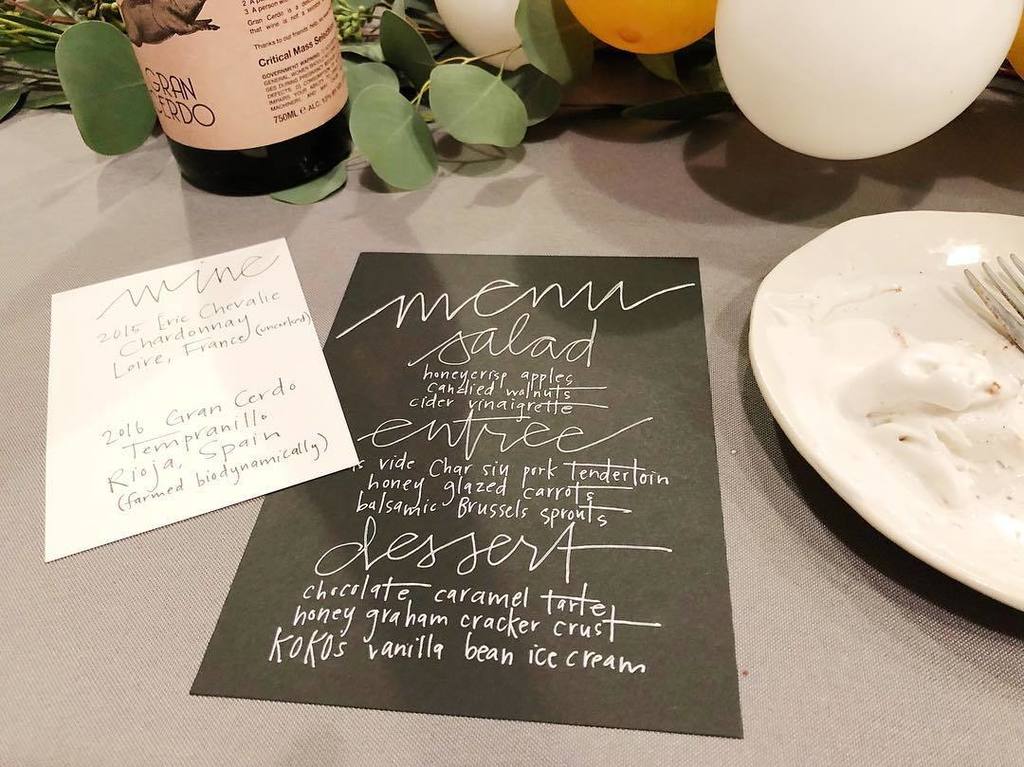 2. A p
3. A person w
Gran Cerdo is a
that wine is not a
Thanks to our friends
Critical Mass Sele
GOVERNMENT WARNING:
MACHINERY, AND
750ML e ALC.
GRAN
CERDO
wine
2015 Eric Chevalie
Chardonnay
Loire, France (uncorked)
2016 Gran Cerdo
Tempranillo
Rioja, Spain
(farmed biodynamically)
menu
salad
honeycrisp apples
candied walnuts
cider vinaigrette
entree
s vide Char siu pork tenderloin
honey glazed carrots
balsamic Brussels sprouts
dessert
chocolate caramel tarte
honey graham cracker crust
KOKOs vanilla bean ice cream